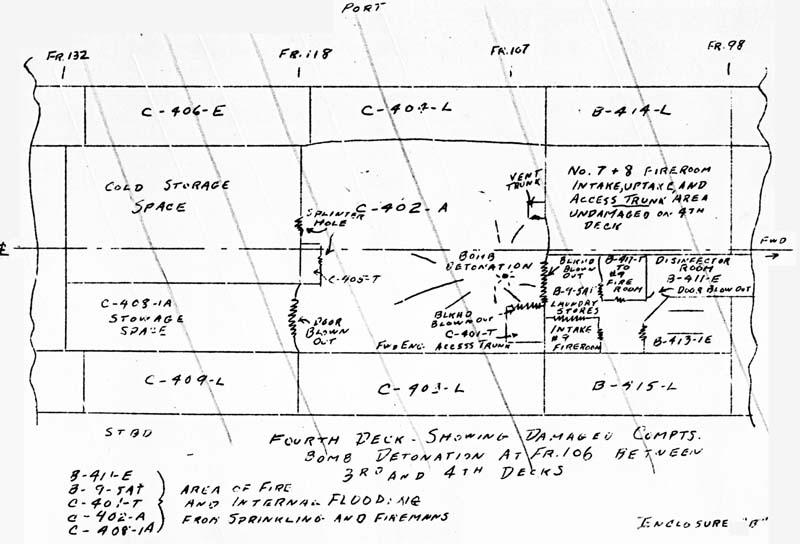 PORT
FR.132
FR.118
FR.107
FR.98
C-406-E
C-404-L
B-414-L
COLD STORAGE
SPACE
SPLINTER
HOLE
C-402-A
C-405-T
VENT
TRUNK
No. 7 + 8 FIREROOM
INTAKE, UPTAKE, AND
ACCESS TRUNK AREA
UNDAMAGED ON 4TH
DECK
FWD
BOMB
DETONATION
BLKHD
BLOWN
OUT
B-417-T
TO
#9
FIRE
ROOM
DISINFECTOR
ROOM
B-411-E
DOOR BLOW OUT
C-408-1A
STOWAGE
SPACE
DOOR
BLOWN
OUT
BLKHD
BLOWN OUT
C-401-T
FWD ENG. ACCESS TRUNK
B-9-5A1
LAUNDRY
STORES
INTAKE
#9
FIREROOM
B-413-1E
C-409-L
C-403-L
B-415-L
STBD
FOURTH DECK - SHOWING DAMAGED COMPTS.
BOMB DETONATION AT FR.106 BETWEEN
3RD AND 4TH DECKS
B-411-E
B-9-5A1
C-401-T
C-402-A
C-408-1A
AREA OF FIRE
AND INTERNAL FLOODING
FROM SPRINKLING AND FIREMAINS
ENCLOSURE "B"